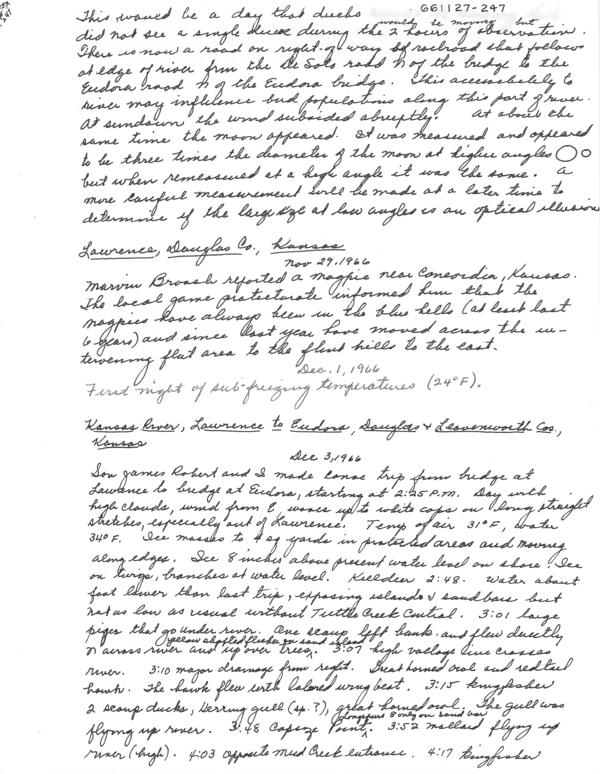 661127-247
This would be a day that ducks would be moving but
did not see a single duck during the 2 hours of observation.
There is now a road on right of way of railroad that follows
at edge of river from the De Soto road N of the bridge to the
Eudora road N of the Eudora bridge. This accessibility to
river may influence bird populations along this part of river.
At sundown the wind subsided abruptly. At about the
same time the moon appeared. It was measured and appeared
to be three times the diameter of the moon at higher angles
but when remeasured at a high angle it was the same. A
more careful measurement will be made at a later time to
determine if the large size at low angles is an optical illusion
Lawrence, Douglas Co., Kansas
Nov 29, 1966
Marvin reported a magpie near Concordia, Kansas.
The local game protectorate informed him that the
magpies have always been in the blue hills (at least last
6 years) and since last year have moved across the in-
tervening flat area to the flint hills to the east.
Dec. 1, 1966
First night of sub-freezing temperatures (24°F).
Kansas River, Lawrence to Eudora, Douglas & Leavenworth Cos.,
Kansas
Dec 3, 1966
Son James Robert and I made canoe trip from bridge at
Lawrence to bridge at Eudora, starting at 2:25 P.M. Day with
high clouds, wind from E, waves up to white caps on long straight
stretches, especially out of Lawrence. Temp of air 31°F, water
34°F. Ice masses to 4 sq yards in protected areas and moving
along edges. Ice 8 inches above present water level on shore. Ice
on twigs, branches at water level. Killdeer 2:48. Water about
foot lower than last trip, exposing islands & sandbars but
not as low as usual without Tuttle Creek Control. 3:01 large
pipes that go under river. One scaup left bank and flew directly
yellow shafted flicker on sand island
n across river and up over trees. 3:07 high voltage line crosses
river. 3:10 major drainage from right. Great horned owl and redtail
hawk. The hawk flew with labored wing beat. 3:15 kingfisher
2 scaup ducks, Herring gull (sp.?), great horned owl. The gull was
flying up river. 3:48 Capsize Point. 3:52 mallard flying up
river (high). 4:03 opposite Mud Creek entrance. 4:17 kingfisher